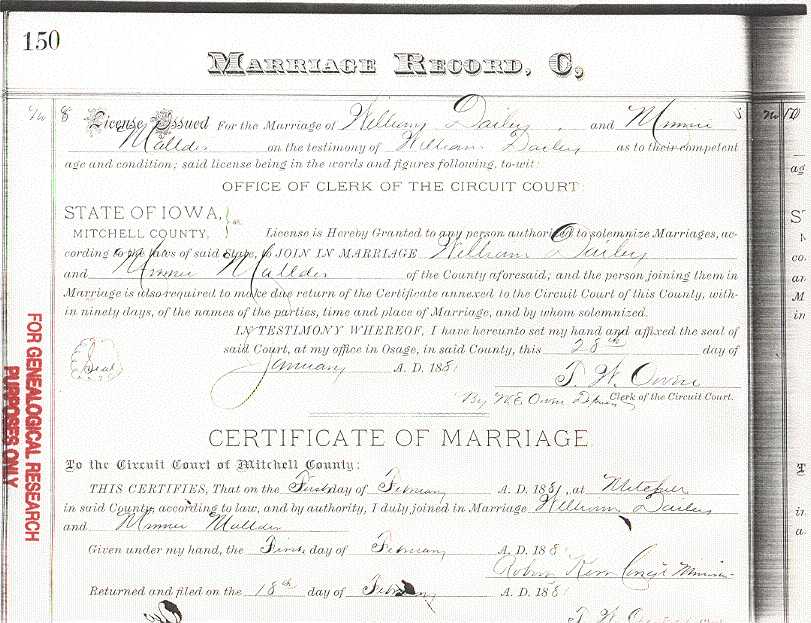 150
MARRIAGE RECORD, C,
8 License Issued For the Marriage of William Dailey and Minnie
Mallder on the testimony of William Dailey as to their competent
age and condition; said license being in the words and figures following, to-wit:
OFFICE OF CLERK OF THE CIRCUIT COURT:
STATE OF IOWA,
MITCHELL COUNTY, } ss License is Hereby Granted to any person authorized to solemnize Marriages, ac-
cording to the laws of said State, to JOIN IN MARRIAGE William Dailey
and Minnie Mallder of the County aforesaid; and the person joining them in
Marriage is also required to make due return of the Certificate annexed to the Circuit Court of this County, with-
in ninety days, of the names of the parties, time and place of Marriage, and by whom solemnized.
IN TESTIMONY WHEREOF, I have hereunto set my hand and affixed the seal of
Seal said Court, at my office in Osage, in said County, this 28th day of
January A. D. 1881 T. W. Owen
By W. E. Owen Deputy Clerk of the Circuit Court.
CERTIFICATE OF MARRIAGE.
To the Circuit Court of Mitchell County:
THIS CERTIFIES, That on the First day of February A. D. 1881, at Mitchell
in said County, according to law, and by authority, I duly joined in Marriage William Dailey
and Minnie Mallder
Given under my hand, the First day of February A. D. 1881
Robert Kerr Congl Minister
Returned and filed on the 18th day of February A. D. 1881
T. W.
FOR GENEALOGICAL RESEARCH
PURPOSES ONLY